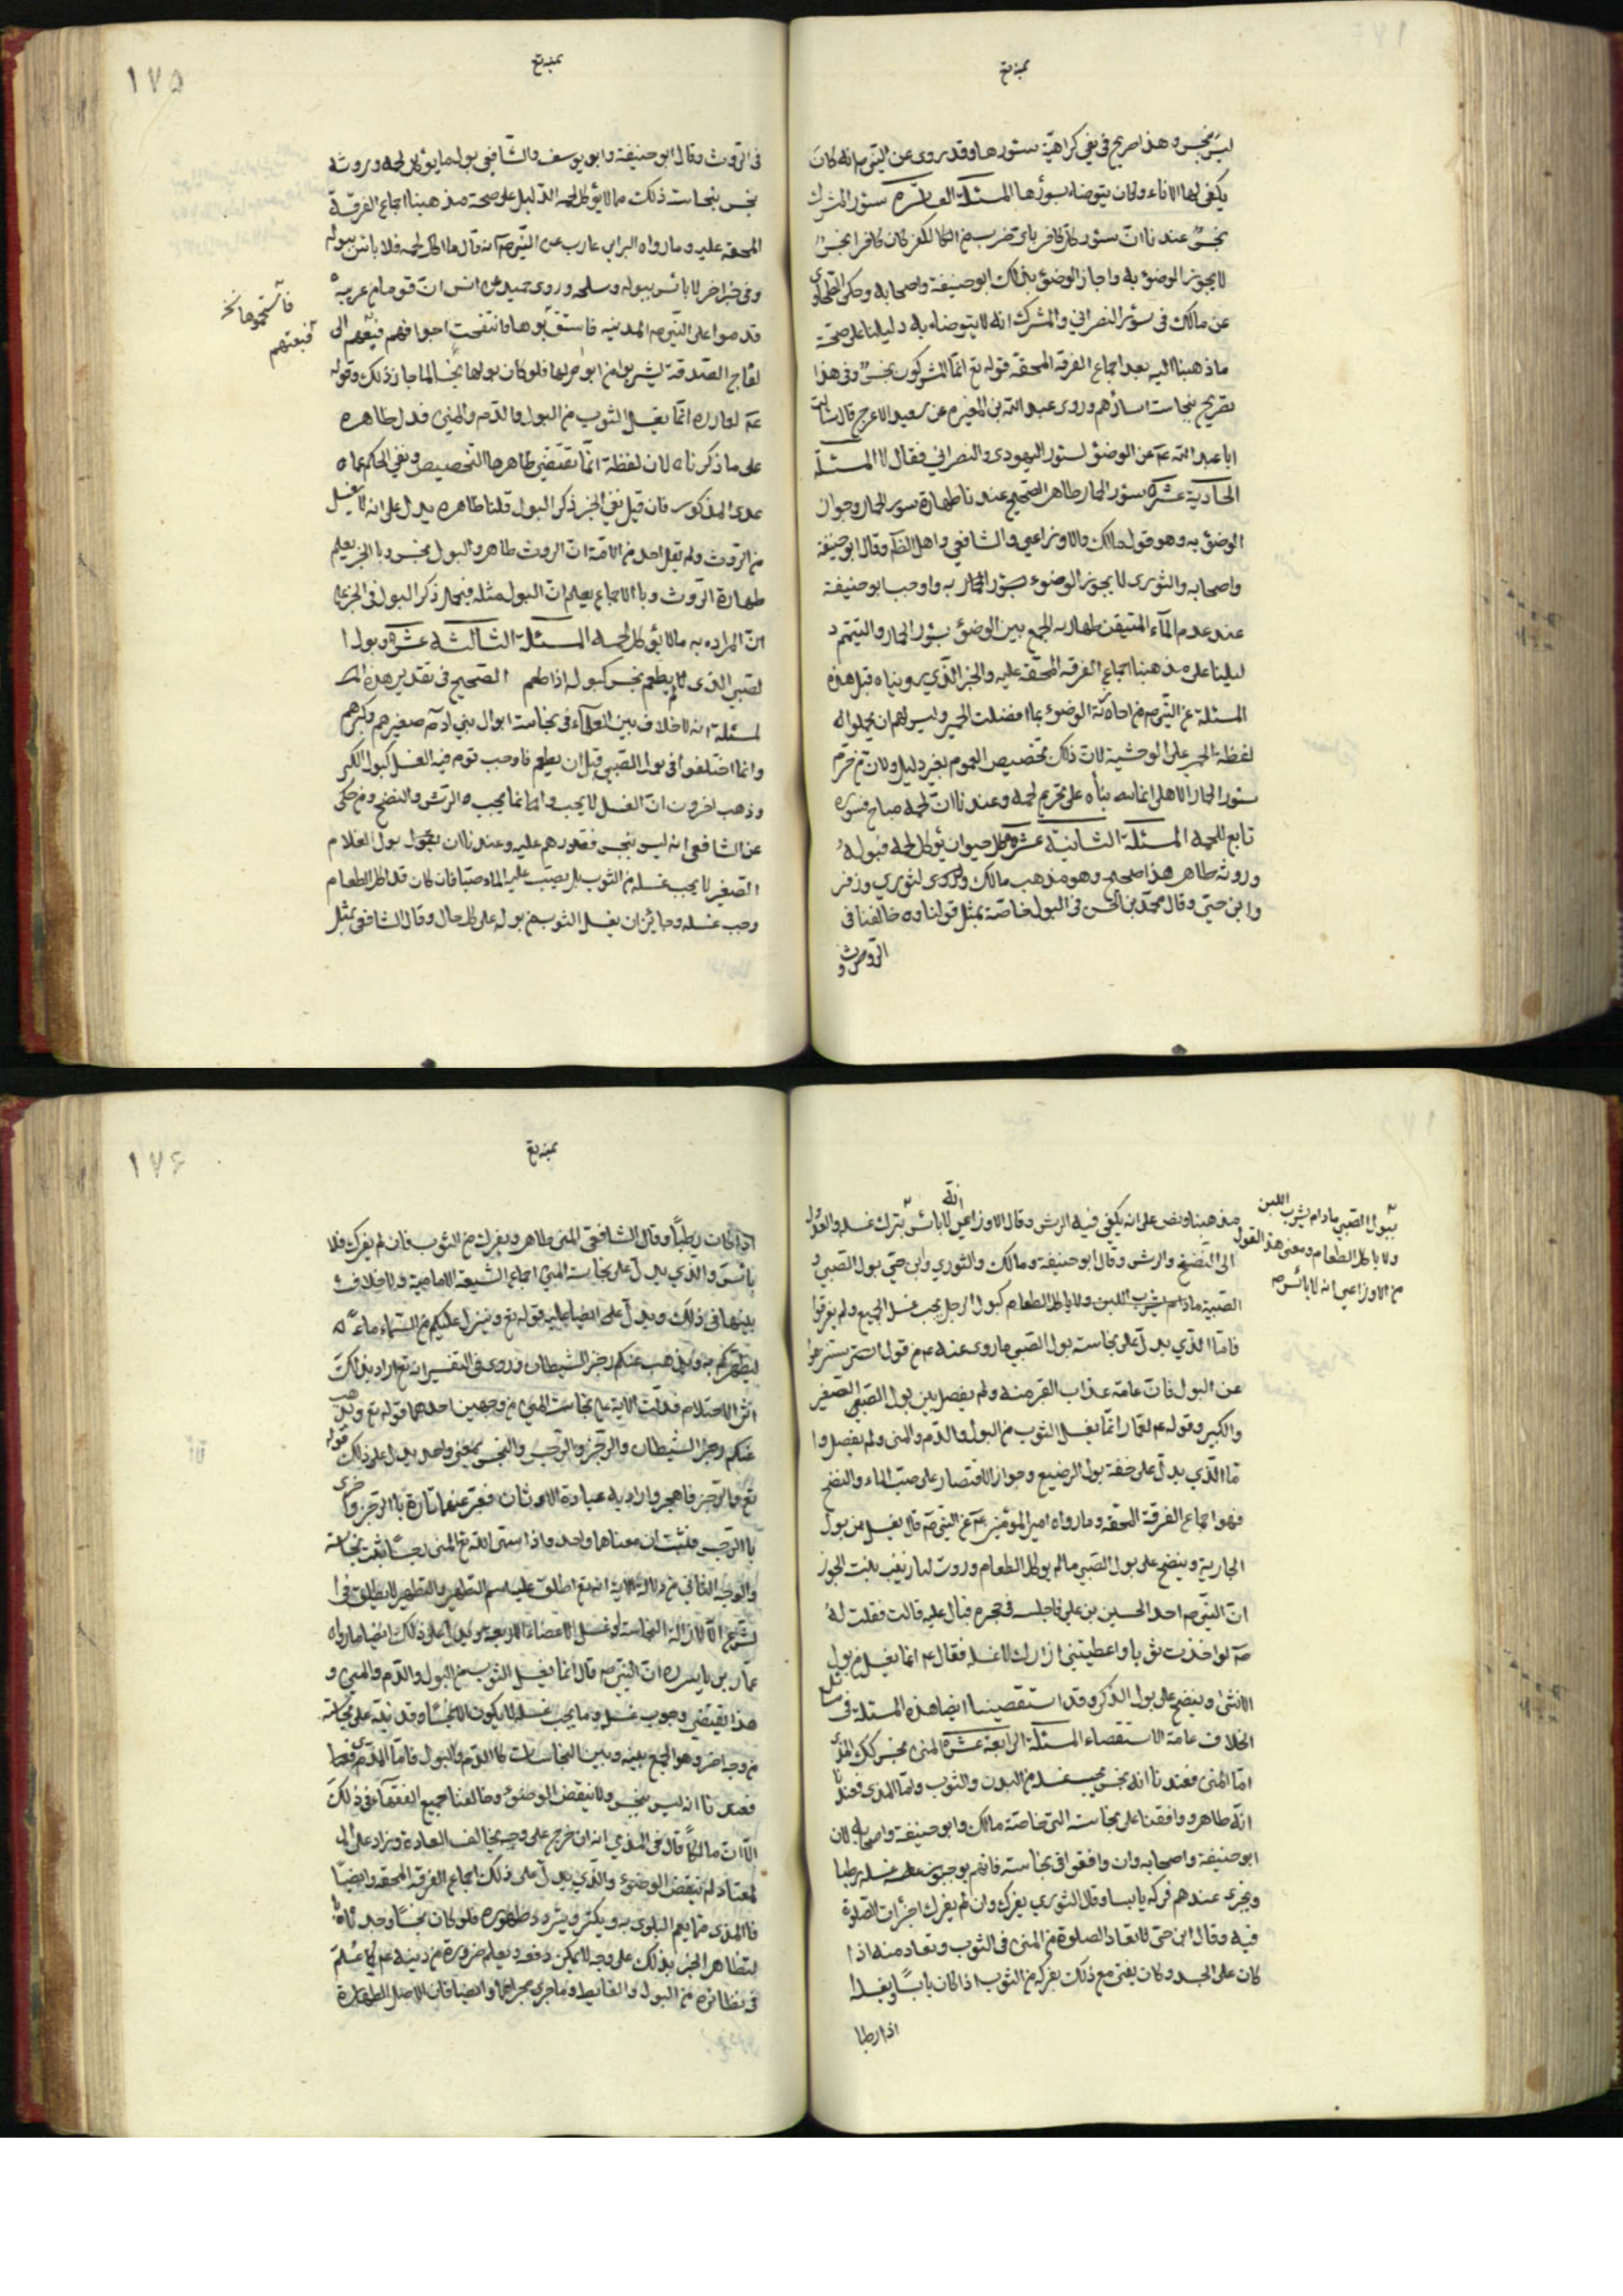 بمنه تع
ليس بنجس وهذا صريح في نفي كراهية سئورها وقد روى عن النبي ص انه كان
يكفي لها الاناء وكان يتوضاء بسورها المسئلة العاشرة سئور المشرك
نجس عندنا ان سئور كل كافر باى ضرب من الكفر كان كافرا نجس
لا يجوز الوضوء به واجاز الوضوء بذلك ابو حنيفة واصحابه وحكى الطحاوى
عن مالك في سؤر النصراني والمشرك انه لا يتوضاء به دليلنا على صحة
ما ذهبنا اليه بعد اجماع الفرقة المحقة قوله تع انما المشركون نجس وفي هذا
تصريح بنجاست اسارهم وروى عبد الله بن المغيره عن سعيد الاعرج قال سالت
ابا عبد الله عم عن الوضوء لسئور اليهودى والنصراني فقال لا المسئلة
الحادية عشره سئور الحمار طاهر الصحيح عندنا طهارة سور الحمار وجواز
الوضوء به وهو قول مالك والاوزاعي والشافعي واهل الظاهر وقال ابو حنيفة
واصحابه والثورى لا يجوز الوضوء بسور الحمار به واوجب ابو حنيفة
عند عدم المآء المتيقن طهارته الجمع بين الوضوء بسؤر الحمار والتيمم د
ليلنا على مذهبنا اجماع الفرقه المحقة عليه والخبر الذي رويناه قبل هذه
المسئلة عن النبي ص من اجازته الوضوء بما افضلت الحمير وليس لهم ان يحملوا له
لفظة الحمير على الوحشية لان ذلك تخصيص العموم بغير دليل ولان من حرم
سئور الحمار الاهلى انما بناه على تحريم لحمه وعندنا ان لحمه مباح فسوره
تابع للحمه المسئلة الثانية عشره كل حيوان يؤكل لحمه فبوله
وروثه طاهر هذا صحيح وهو مذهب مالك والثوري وزفر
وابن حي وقال محمد بن الحسن في البول خاصة بمثل قولنا وه خالفنا في
الروث
بمنه تع
١٧٥
في الروث وقال ابو حنيفة وابو يوسف والشافعي بول ما يؤكل لحمه وروثه
نجس بنجاست ذلك مما لا يؤكل لحمه الدليل على صحة مذهبنا اجماع الفرقة
المحقة عليه وما رواه البراء بن عازب عن النبي ص انه قال ما اكل لحمه فلا باس ببوله
وفي خبر اخر لا باس ببوله وسلحه وروى حميد عن انس ان قوما من عرينه
قدموا على النبي ص المدينه فاستوبوها فانتفخت اجوافهم فبعثهم الى
فاستحموها نخ
فبعثهم
لقاح الصدقة ليشربوا من ابوالها فلو كان بولها نجسا لما جاز ذلك وقوله
عم لعمار ره انما يغسل الثوب من البول والدم والمني فدل ظاهره
على ما ذكرناه لان لفظة انما تقتضي ظاهرها التخصيص ونفي الحكم عما
عدى المذكور فان قيل ففي الخبر ذكر البول قلنا ظاهره يدل على انه لا يغسل
من الروث ولم يقل احد من الامة ان الروث طاهر والبول نجس وبالخبر يعلم
طهارة الروث وبالاجماع يعلم ان البول مثله فيحمل ذكر البول في الخبر على
ان المراد به ما لا يؤكل لحمه المسئلة الثالثة عشره وبول ا
لصبي الذى لم يطعم نجس كبوله اذا طعم الصحيح في تقدير هذه ا
لمسئلة انه لا خلاف بين العلمآء في نجاست ابوال بني ادم صغيرهم وكبيرهم
وانما اختلفوا في بول الصبي قبل ان يطعم فاوجب قوم فيه الغسل كبول الكبير
وذهب اخرون ان الغسل لا يجب وانما يجب الرش والنضح ومن حكى
عن الشافعي انه ليس بنجس فقد وهم عليه وعندنا ان بول الغلام
الصغير لا يجب غسله من الثوب بل يصب عليه الماء صبا فان كان قد اكل الطعام
وجب غسله وجائز ان يغسل الثوب من بوله على كل حال وقال الشافعي بمثل
مذهبنا ونص على انه يكفي فيه الرش وقال الاوزاعي لا باس بترك غسله والعدول
ببول الصبي مادام يشرب اللبن
ولا ياكل الطعام ومعنى هذا القول
من الاوزاعي انه لا باس
الى النضح والرش وقال ابو حنيفة ومالك والثوري وابن حي بول الصبي و
الصبية مادام يشرب اللبن ولا ياكل الطعام كبول الرجل يجب غسل الجميع ولم يفرقوا
فاما الذي يدل على نجاسة بول الصبي ما روى عنه عم من قوله استنزهوا
عن البول فان عامة عذاب القبر منه ولم يفصل بين بول الصبي الصغير
والكبير وقوله عم لعمار انما يغسل الثوب من البول والدم والمنى ولم يفصل وا
ما الذي يدل على خفة بول الرضيع وجواز الاقتصار على صب الماء والنضح
فهو اجماع الفرقة المحقه وما رواه امير المؤمنين عم عن النبي ص قال يغسل من بول
الجارية وينضح على بول الصبي ما لم ياكل الطعام وروت لبا زينب بنت الجون
ان النبي ص اخذ الحسين بن علي فاجلسه في حجره فبال عليه قالت فقلت له
ص لو اخذت ثوبا واعطيتني ازارك لاغسله فقال عم انما يغسل من بول
الانثى وينضح على بول الذكر وقد استقصينا ايضا هذه المسئلة في مسائل
الخلاف غاية الاستقصاء المسئلة الرابعة عشره المنى نجس كذلك المذى
اما المنى فعندنا انه نجس يجب غسله من البدن والثوب واما المذى فعندنا
انه طاهر ووافقنا على نجاسة المنى خاصة مالك وابو حنيفة واصحابه لان
ابو حنيفة واصحابه وان وافقوا في نجاسته فانهم يوجبون غسله رطبا
ويجزى عندهم فركه يابسا وقال الثوري يفرك وان لم يفرك اجزات الصلوة
فيه وقال ابن حى لا تعاد الصلوة من المنى في الثوب وتعاد منه اذا
كان على الجسد وكان يفتى مع ذلك بفركه من الثوب اذا كان يابسا ويغسله ا
اذا رطبا
بمنه تع
١٧۶
اذا كان رطبا وقال الشافعي المنى طاهر ويفرك من الثوب فان لم يفرك فلا
باس والذي يدل على نجاسة المنى اجماع الشيعة الامامية ولا خلاف
بينها في ذلك ويدل على ايضا عليه قوله تع وينزل عليكم من السماء ماء
ليطهركم به ويذهب عنكم رجز الشيطان وروى في التفسير انه تع اراد بذلك
اثر الاحتلام فدلت الاية على نجاسة المنى من وجهين احدهما قوله تع ويذهب
عنكم رجز الشيطان والرجز والرجس والنجس بمعنى واحد يدل على ذلك قوله
تع والرجز فاهجر واراد به عبادة الاوثان فعبر عنها تارة بالرجز واخرى
بالرجس فثبت ان معناهما واحد واذا سمى الله تع المنى رجسا ثبت نجاسته
والوجه الثاني من دلالة الاية انه تع اطلق عليه اسم التطهير والتطهير لا يطلق في ا
لشرع الا لازالة النجاسة او غسل الاعضاء الاربعة ويدل على ذلك ايضا ما رواه
عمار بن ياسر ره ان النبي ص قال انما يغسل الثوب من البول والدم والمني و
هذا يقتضي وجوب غسله وما يجب غسله لا يكون الا نجسا وقد نبه على نجاسته
من وجه اخر وهو الجمع بينه وبين النجاسات كالدم والبول فاما المذى
فعندنا انه ليس بنجس ولا ينقض الوضوء وخالفنا جميع الفقهاء في ذلك
الا ان مالكا قال في المذي انه ان خرج على وجه يخالف العادة وزاد على ال
معتاد لم ينقض الوضوء والذي يدل على ذلك اجماع الفرقة المحقه وايضا
فالمذى مما يعم البلوى به ويكثر ويتردد ظهوره فلو كان نجسا وحدثا
لتظاهر الخبر بذلك على وجه لا يمكن دفعه ويعلم ضرورة من دينه عم كما علم
في نظائره من البول والغايط وما جرى مجراهما وايضا فان الاصل الطهارة